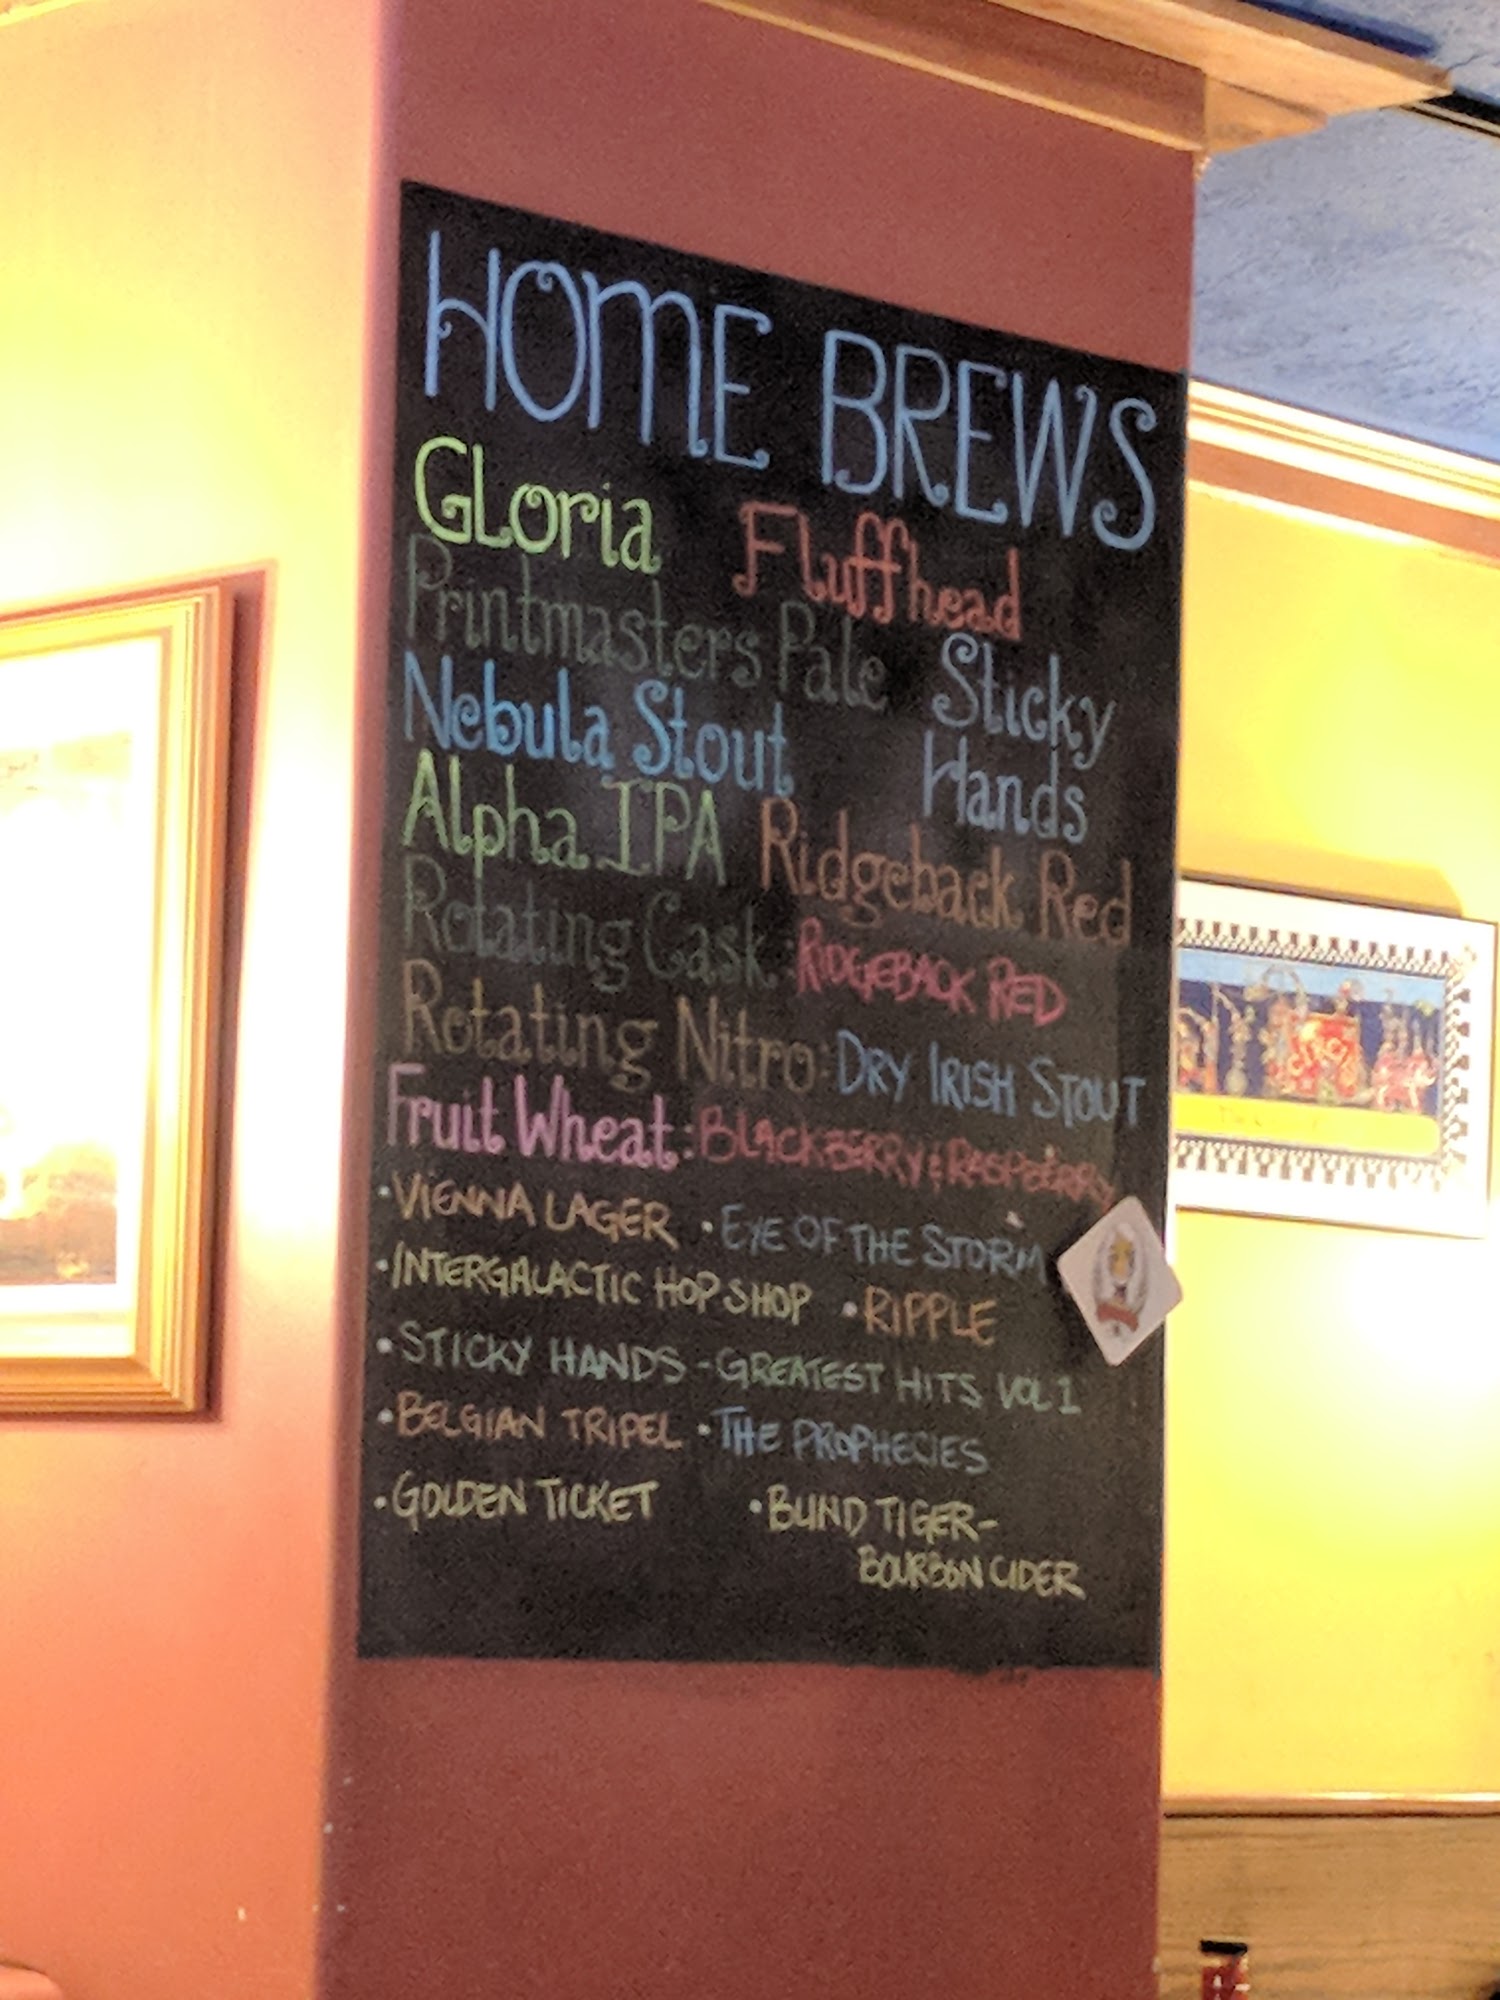 HOME BREWS
Gloria Fluffhead
Printmasters Pale Sticky
Nebula Stout Hands
Alpha IPA Ridgeback Red
Rotating Cask: RIDGEBACK RED
Rotating Nitro: DRY IRISH STOUT
Fruit Wheat: BLACKBERRY & RASPBERRY
• VIENNA LAGER • EYE OF THE STORM
• INTERGALACTIC HOP SHOP • RIPPLE
• STICKY HANDS - GREATEST HITS VOL 1
• BELGIAN TRIPEL • THE PROPHECIES
• GOLDEN TICKET • BLIND TIGER -
BOURBON CIDER